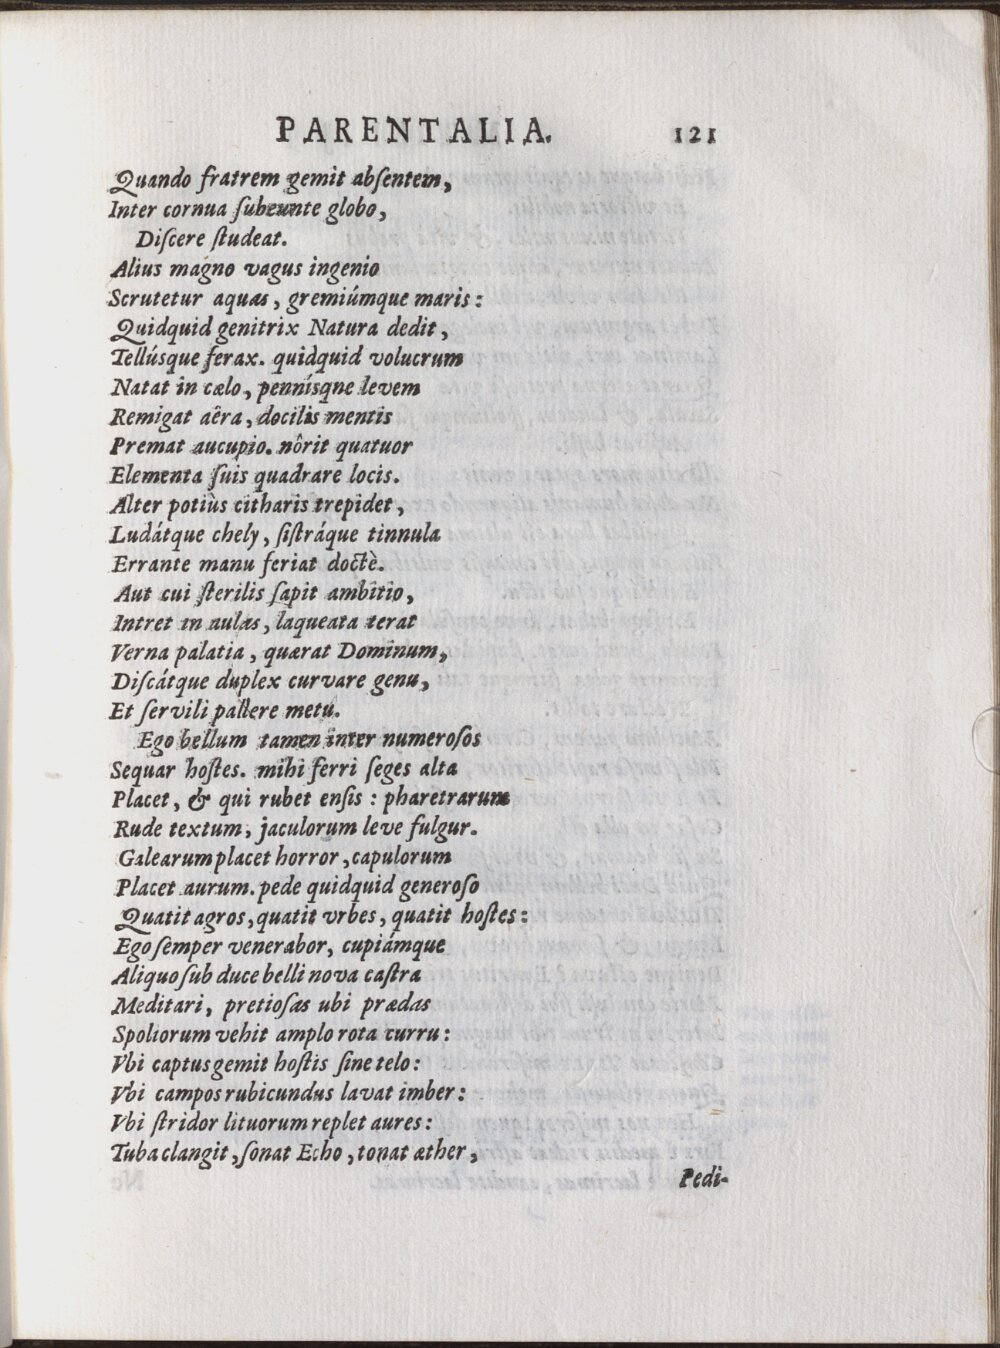 PARENTALIA. 121
Quando fratrem gemit absentem,
Inter cornua subeunte globo,
Discere studeat.
Alius magno vagus ingenio
Scrutetur aquas, gremiúmque maris:
Quidquid genitrix Natura dedit,
Tellúsque ferax. quidquid volucrum
Natat in cælo, pennísqne levem
Remigat aêra, docilis mentis
Premat aucupio. nôrit quatuor
Elementa suis quadrare locis.
Alter potiùs citharis trepidet,
Ludátque chely, sistráque tinnula
Errante manu feriat doctè.
Aut cui sterilis sapit ambitio,
Intret in aulas, laqueata terat
Verna palatia, quærat Dominum,
Discátque duplex curvare genu,
Et servili pallere metu.
Ego bellum tamen inter numerosos
Sequar hostes. mihi ferri seges alta
Placet, & qui rubet ensis: pharetrarum
Rude textum, jaculorum leve fulgur.
Galearum placet horror, capulorum
Placet aurum. pede quidquid generoso
Quatit agros, quatit vrbes, quatit hostes:
Ego semper venerabor, cupiámque
Aliquo sub duce belli nova castra
Meditari, pretiosas ubi prædas
Spoliorum vehit amplo rota curru:
Vbi captus gemit hostis sine telo:
Vbi campos rubicundus lavat imber:
Vbi stridor lituorum replet aures:
Tuba clangit, sonat Echo, tonat æther,
Pedi-